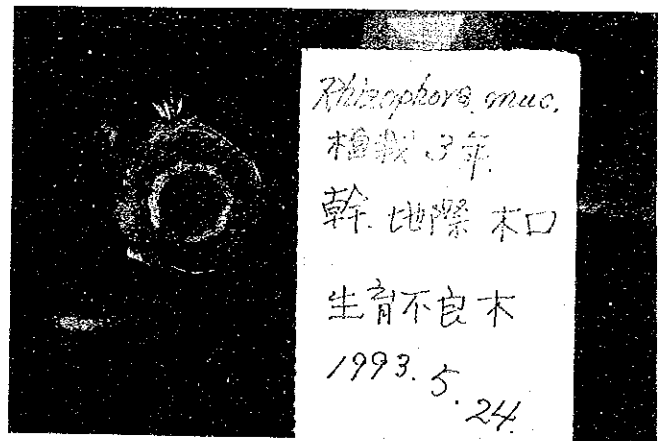 Rhizophora muc.
植栽 3年
幹 地際 木口
生育不良木
1993. 5. 24.